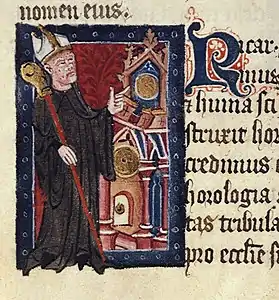 nomen eius.
Ricar
mus
t huma sci
struxit hor
credimus
horologia
tas tribula
pro ecclie s